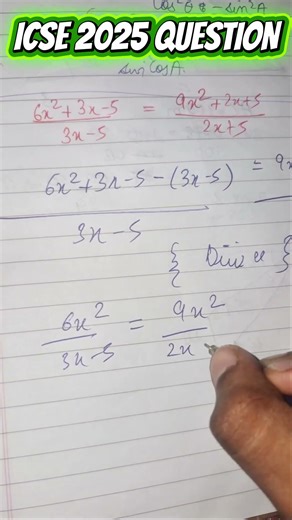 ICSE 2025 QUESTION
cos²θ & - sin²A
sin cos A.
6x²+3x-5 / 3x-5 = 9x²+2x+5 / 2x+5
6x²+3x-5-(3x-5) / 3x-5 = 9x
{ }
6x² / 3x-5 = 9x² / 2x